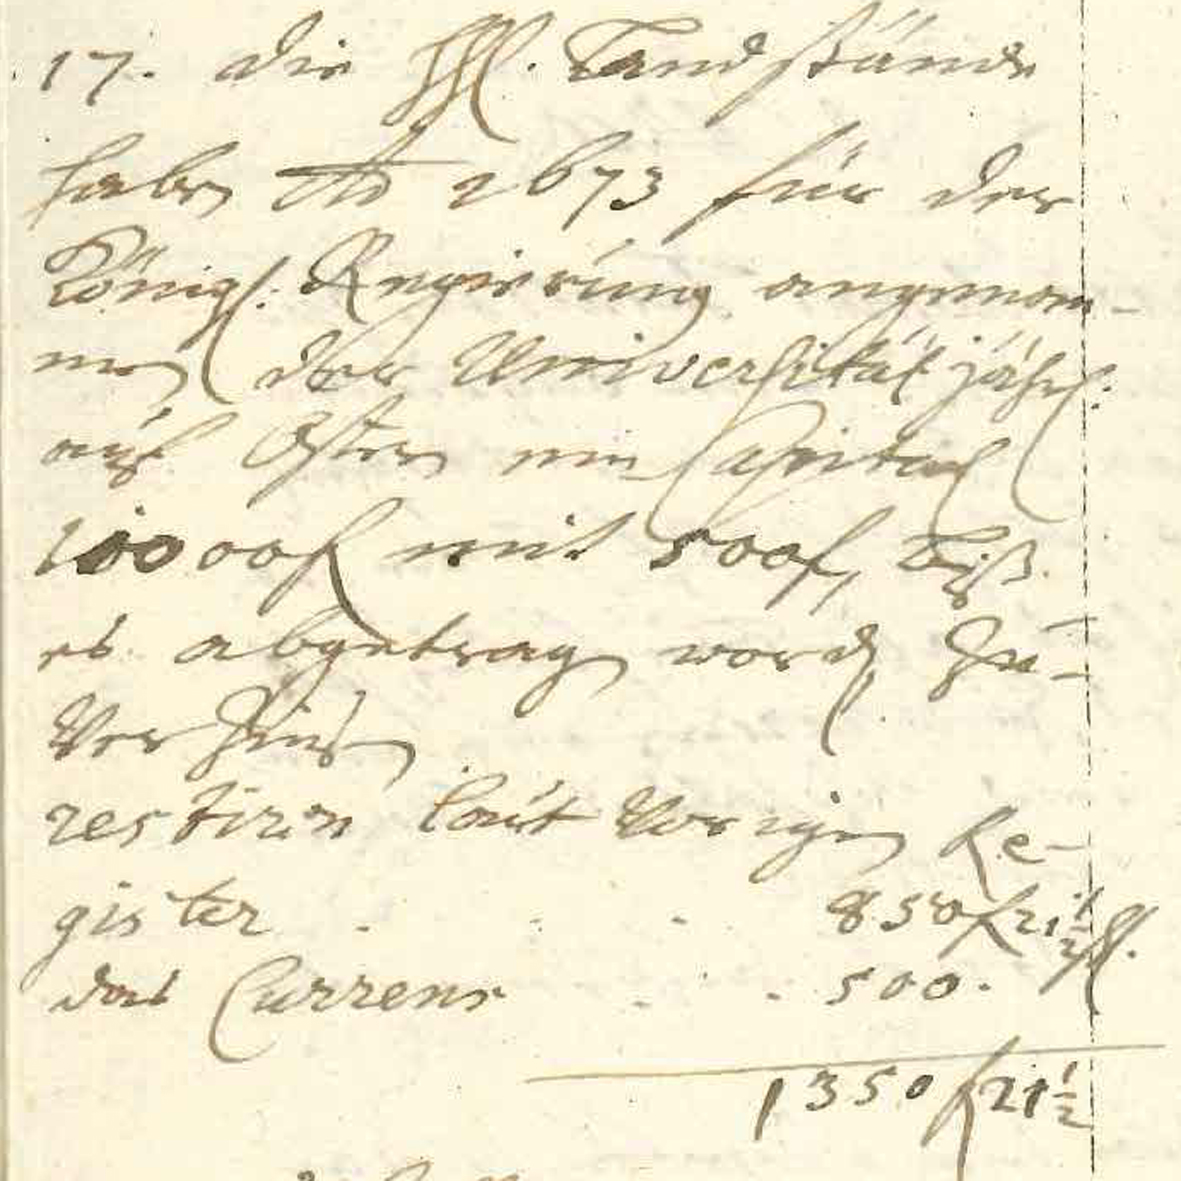 17. die HH. Landstände
haben Ao 1673 für der
Königl. Regierung angenom-
men der Universität jährl.
auf Ostern ein Capital
10000 f mit 500 f, biß
es abgetragen worden zu
Verzinsen
restiren laut Vorigen Re-
gister . . . 850 f 21 1/2 ßl.
das Currens . . 500.
1350 f 21 1/2